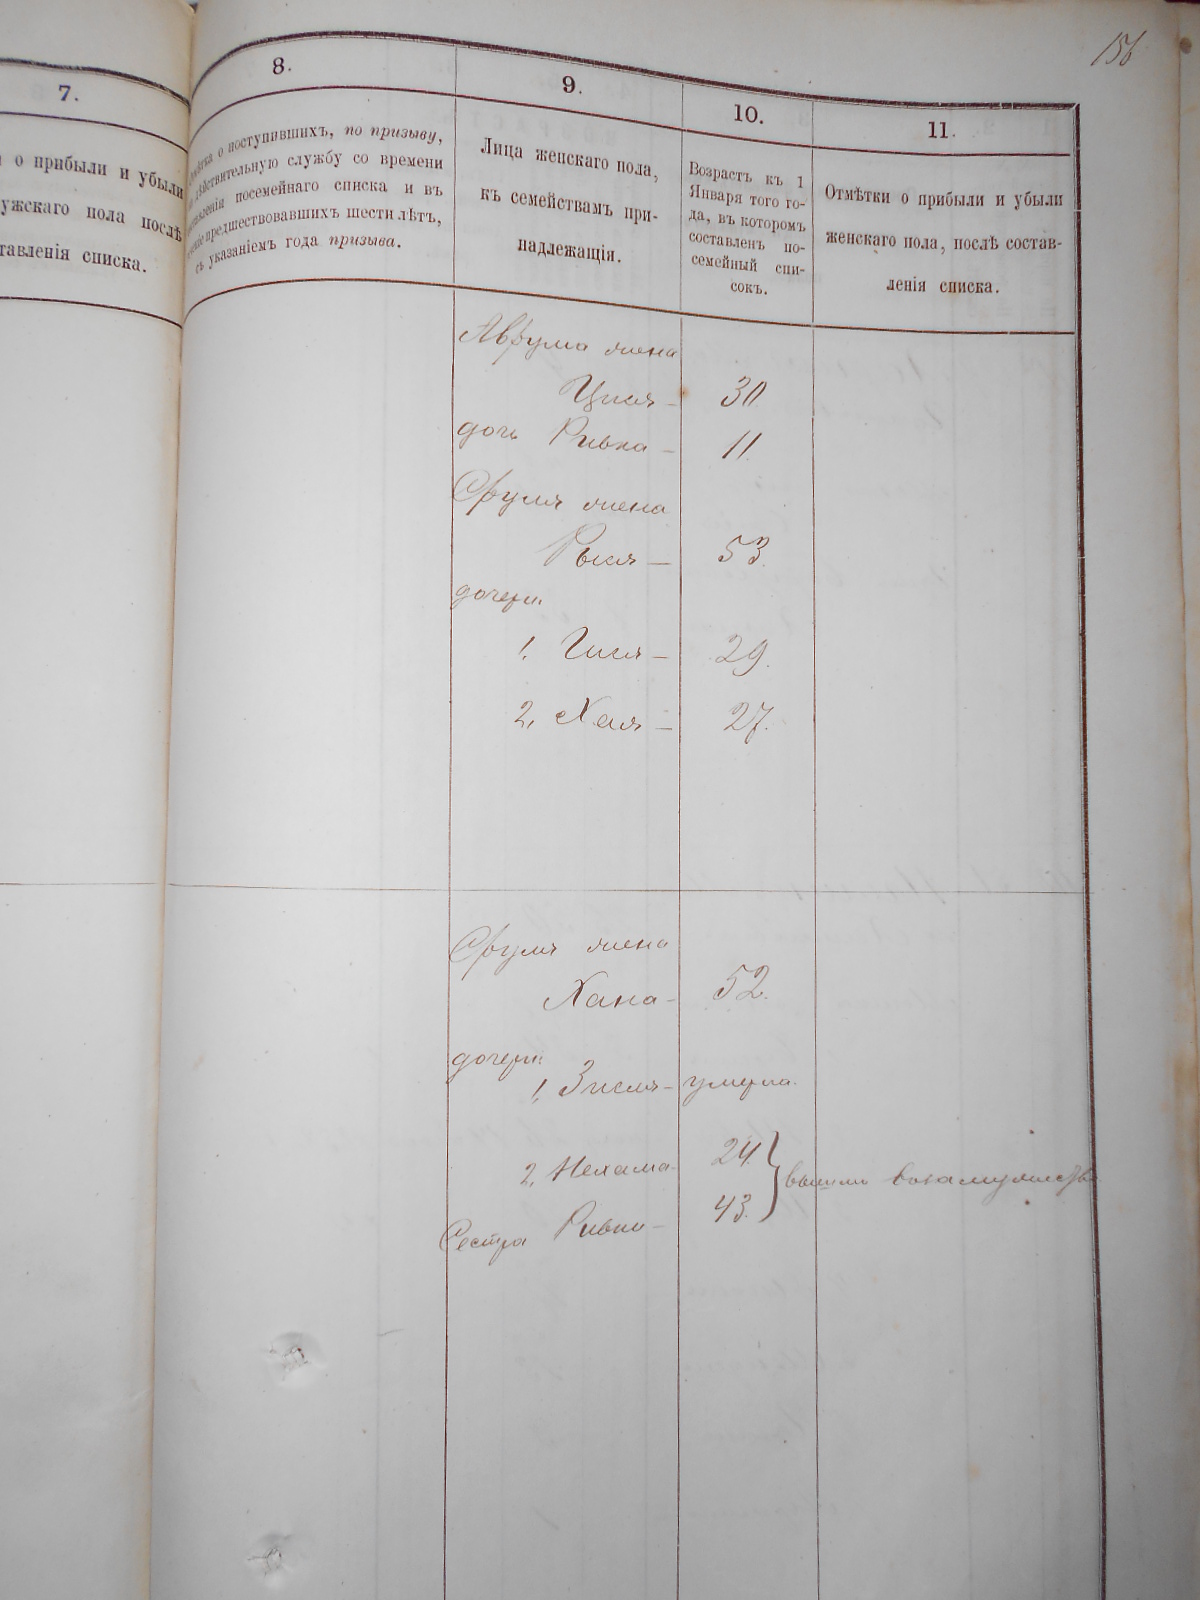 156
7.
о прибыли и убыли
ужскаго пола послѣ
тавленія списка.
8.
о поступившихъ, по призыву,
дѣйствительную службу со времени
посемейнаго списка и въ
предшествовавшихъ шести лѣтъ,
съ указаніемъ года призыва.
9.
Лица женскаго пола,
къ семействамъ при-
надлежащія.
10.
Возрастъ къ 1
Января того го-
да, въ которомъ
составленъ по-
семейный спи-
сокъ.
11.
Отмѣтки о прибыли и убыли
женскаго пола, послѣ состав-
ленія списка.
Аврума жена
Цися - 30
дочь Ривка - 11
Сруля жена
Рыся - 53.
дочери
1. Гися - 29.
2. Хая - 27.
Сруля жена
Хана - 52.
дочери
1. Зисля - умерла.
2. Нехама - 24
вышли въ замужество
Сестра Ривка - 43.